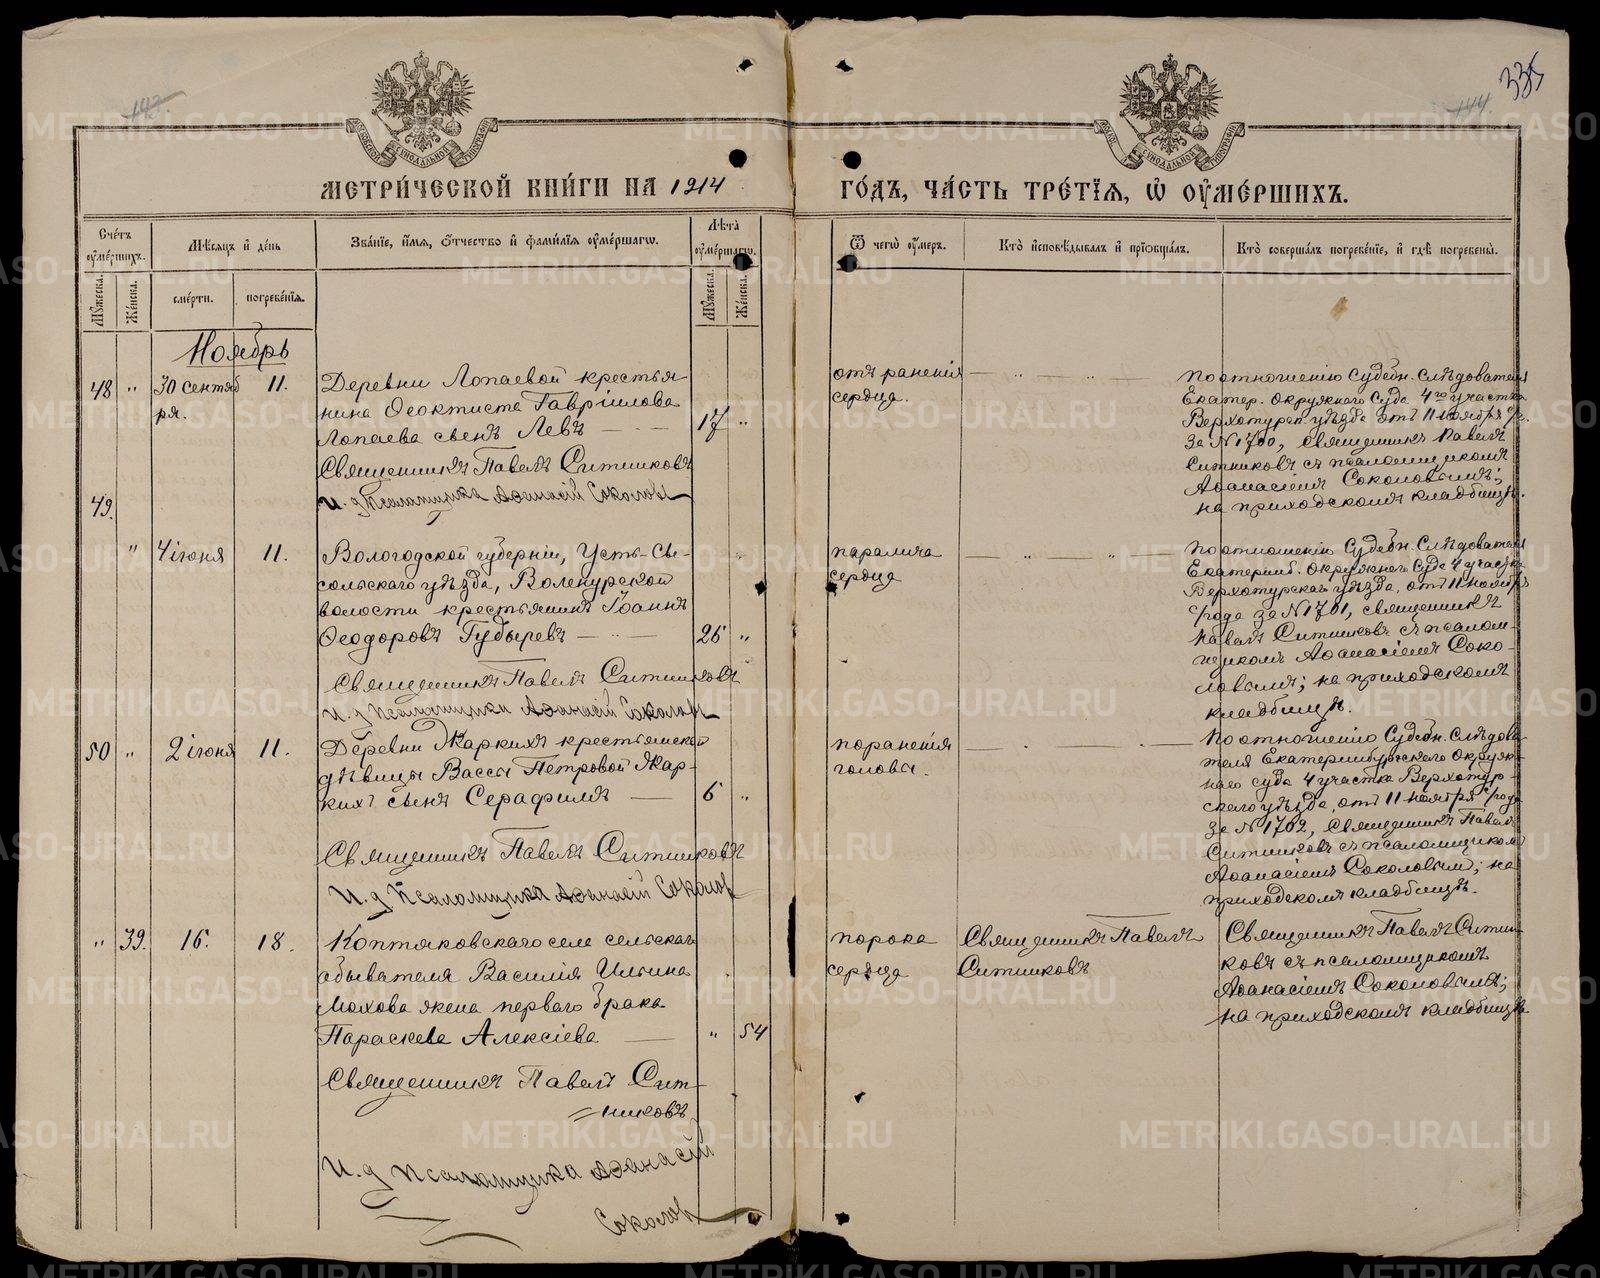 335
193.
144.
МОСКОВСКОЙ СѴНОДАЛЬНОЙ ТИПОГРАФІИ
СѴНОДАЛЬНОЙ ТИПОГРАФІИ
МЕТРИ́ЧЕСКОЙ КНИ́ГИ НА 1914
ГО́ДЪ, ЧА́СТЬ ТРЕ́ТЇѦ, Ѡ҆ ОУ҆МЕ́РШИХЪ.
Сче́тъ оу҆ме́ршихъ.
Мꙋ́жеска.
Же́нска.
Мѣ́сѧцъ и҆ де́нь
сме́рти.
погребе́нїѧ.
Зва́нїе, и҆́мѧ, ѻ҆́тчество и҆ фами́лїѧ оу҆ме́ршагѡ.
Лѣ́та оу҆ме́ршагѡ.
Мꙋ́жеска.
Же́нска.
Ѿ чегѡ̀ оу҆́меръ.
Кто̀ и҆сповѣ́дывалъ и҆ прїѻбща́лъ.
Кто̀ соверша́лъ погребе́нїе, и҆ гдѣ̀ погребены̀.
Ноябрь
48 " 30 сентяб 11.
ря.
Деревни Лопаевой крестья
нина Ѳеоктиста Гавріилова
Лопаева сынъ Левъ — 17 "
Священникъ Павелъ Ситниковъ
И. д Псаломщика Аѳанасій Соколовъ
отъ раненія
сердца.
По отношенію Судебн. Слѣдователя
Екатер. Окружнаго Суда 4го участка
Верхотурск. уѣзда отъ 11 ноября с/г.
за N 1700, Священникъ Павелъ
Ситниковъ съ псаломщикомъ
Аѳанасіемъ Соколовымъ;
на приходскомъ кладбищѣ.
49.
" 4 іюня 11.
Вологодской губерніи, Усть-Сы-
сольскаго уѣзда,
волости крестьянинъ Іоаннъ
Ѳеодоровъ Губыревъ — 25 "
Священникъ Павелъ Ситниковъ
И. д Псаломщика Аѳанасій Соколовъ
паралича
сердца
По отношенію Судебн. Слѣдователя
Екатеринб. Окружнаго Суда 4 участка
Верхотурскаго уѣзда, отъ 11 ноября
с/года за N 1701, священникъ
Павелъ Ситниковъ съ псалом-
щикомъ Аѳанасіемъ Соко-
ловымъ; на приходскомъ
кладбищѣ.
50 " 2 іюня 11.
Деревни Жаркихъ крестьянской
дѣвицы Вассы Петровой Жар-
кихъ сынъ Серафимъ — 6 "
Священникъ Павелъ Ситниковъ
И. д Псаломщика Аѳанасій Соколовъ
поранѣнія
головы.
По отношенію Судебн. Слѣдова-
теля Екатеринбургскаго Окруж-
наго суда 4 участка Верхотур-
скаго уѣзда, отъ 11 ноября с/года
за N 1702, Священникъ Павелъ
Ситниковъ съ псаломщикомъ
Аѳанасіемъ Соколовымъ; на
приходскомъ кладбищѣ.
" 39. 16. 18.
Коптяковскаго села сельскаго
обывателя Василія Ильина
Мохова жена перваго брака
Параскева Алексіева — " 54
Священникъ Павелъ Сит-
никовъ
И. д Псаломщика Аѳанасій
Соколовъ
порока
сердца
Священникъ Павелъ
Ситниковъ
Священникъ Павелъ Ситни-
ковъ съ псаломщикомъ
Аѳанасіемъ Соколовымъ;
на приходскомъ кладбищѣ
METRIKI.GASO-URAL.RU